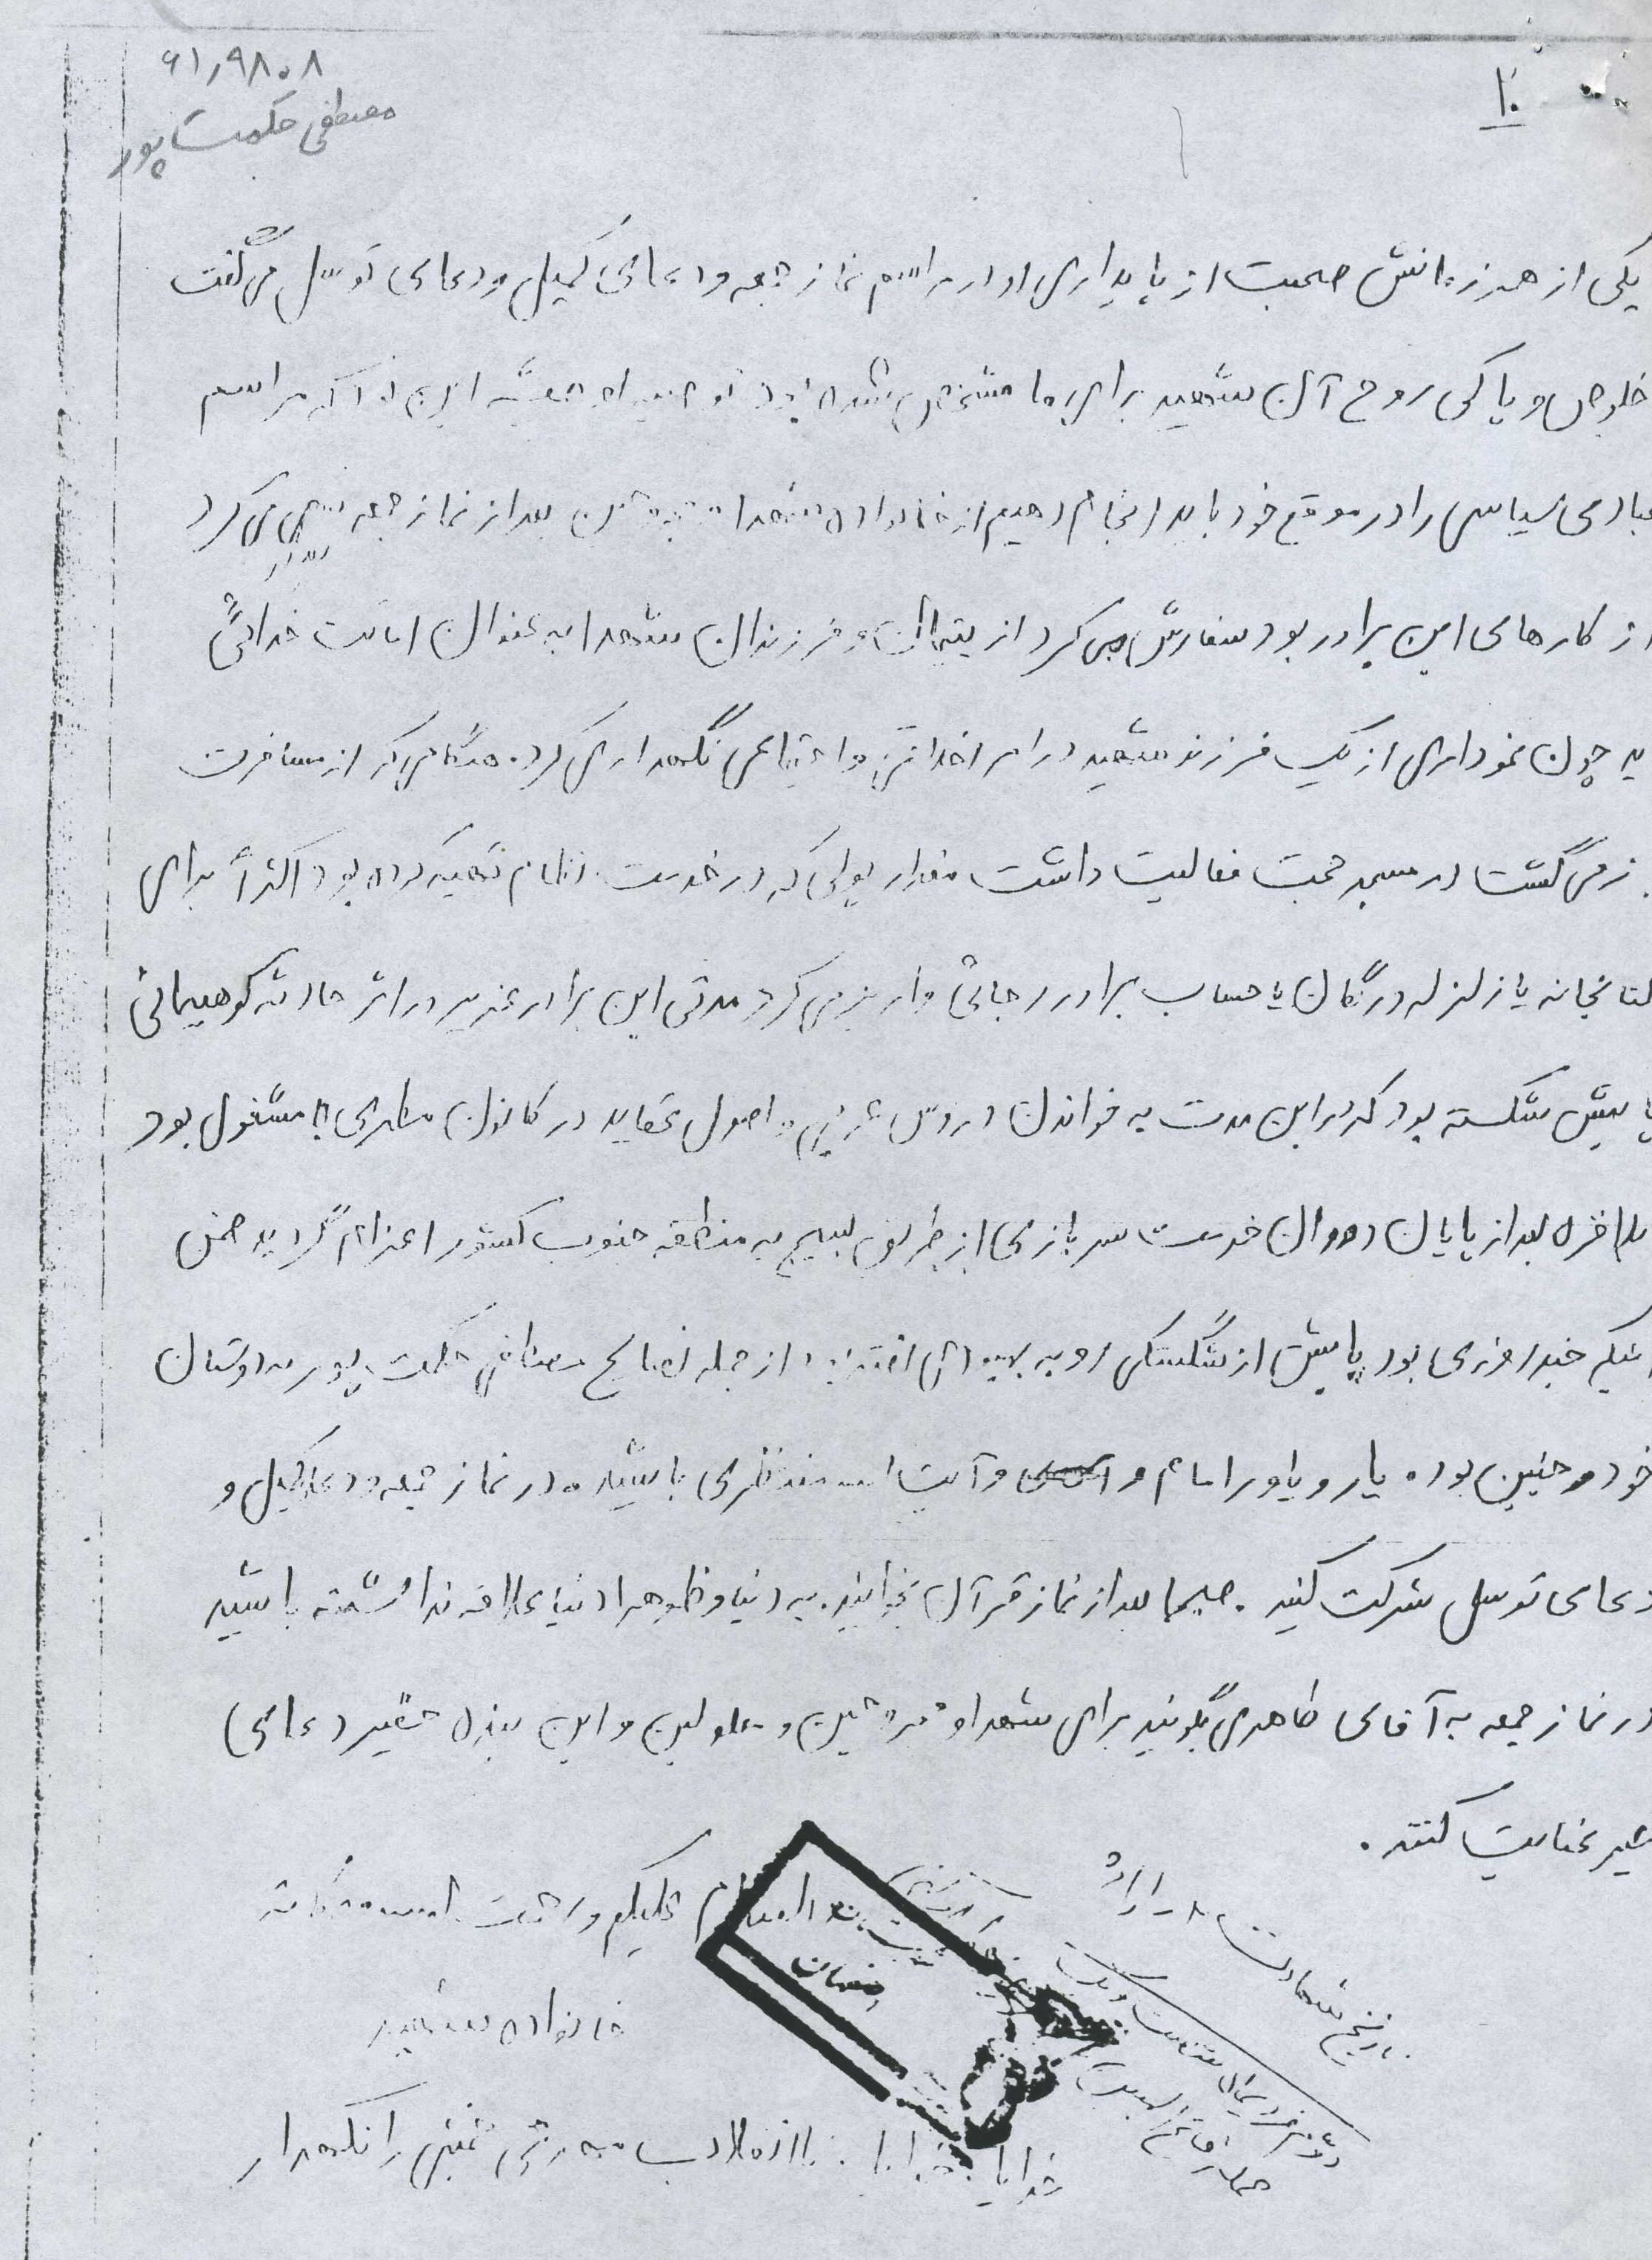 ۶۱٫۹۸۰۸
مصطفی حکمت پور
۱۰
یکی از همرزمانش صحبت از پایداری او در مراسم نماز جمعه و دعای کمیل و دعای توسل می گفت
خلوص و پاکی روح آن شهید برای ما مشخص شده بود توصیه او همیشه این بود که مراسم
عبادی سیاسی را در موقع خود باید انجام دهیم از خانواده شهدا بعد از نماز جمعه می کرد
از کارهای این برادر بود سفارش می کرد از یتیمان و فرزندان شهدا به عنوان امانت خدائی
به چون نموداری از یک فرزند شهید در امر اخلاقی و اجتماعی نگهداری کرد. هنگامی که از مسافرت
بر می گشت در مسجد محبت فعالیت داشت مقدار پولی که در خدمت نظام تهیه کرده بود اکثراً برای
کتابخانه یا زلزله درگان یا حساب برادر رجائی واریز می کرد مدتی این برادر عزیز در اثر حادثه کوهپیمائی
پایش شکسته بود که در این مدت به خواندن دروس عربی و اصول عقاید در کانون مطهری مشغول بود
بلاخره بعد از پایان دوران خدمت سربازی از طریق بسیج به منطقه جنوب کشور اعزام گردید ضمن
اینکه چند روزی بود پایش از شکستگی رو به بهبودی افتد از جمله نصایح مصطفی حکمت پور به دوستان
خود چنین بوده یار و یاور امام و آیت اله منتظری باشید. در نماز جمعه و دعای کمیل و
دعای توسل شرکت کنید. صبحها بعد از نماز قرآن بخوانید. به دنیا و ظواهر دنیا علاقه نداشته باشید
در نماز جمعه به آقای طاهری بگویید برای شهدا و مجروحین و معلولین و این بنده حقیر دعای
خیر عنایت کنند.
السلام علیکم و رحمت اله و برکاته
خانواده شهید
تاریخ شهادت
خدایا خدایا تا انقلاب مهدی خمینی را نگهدار